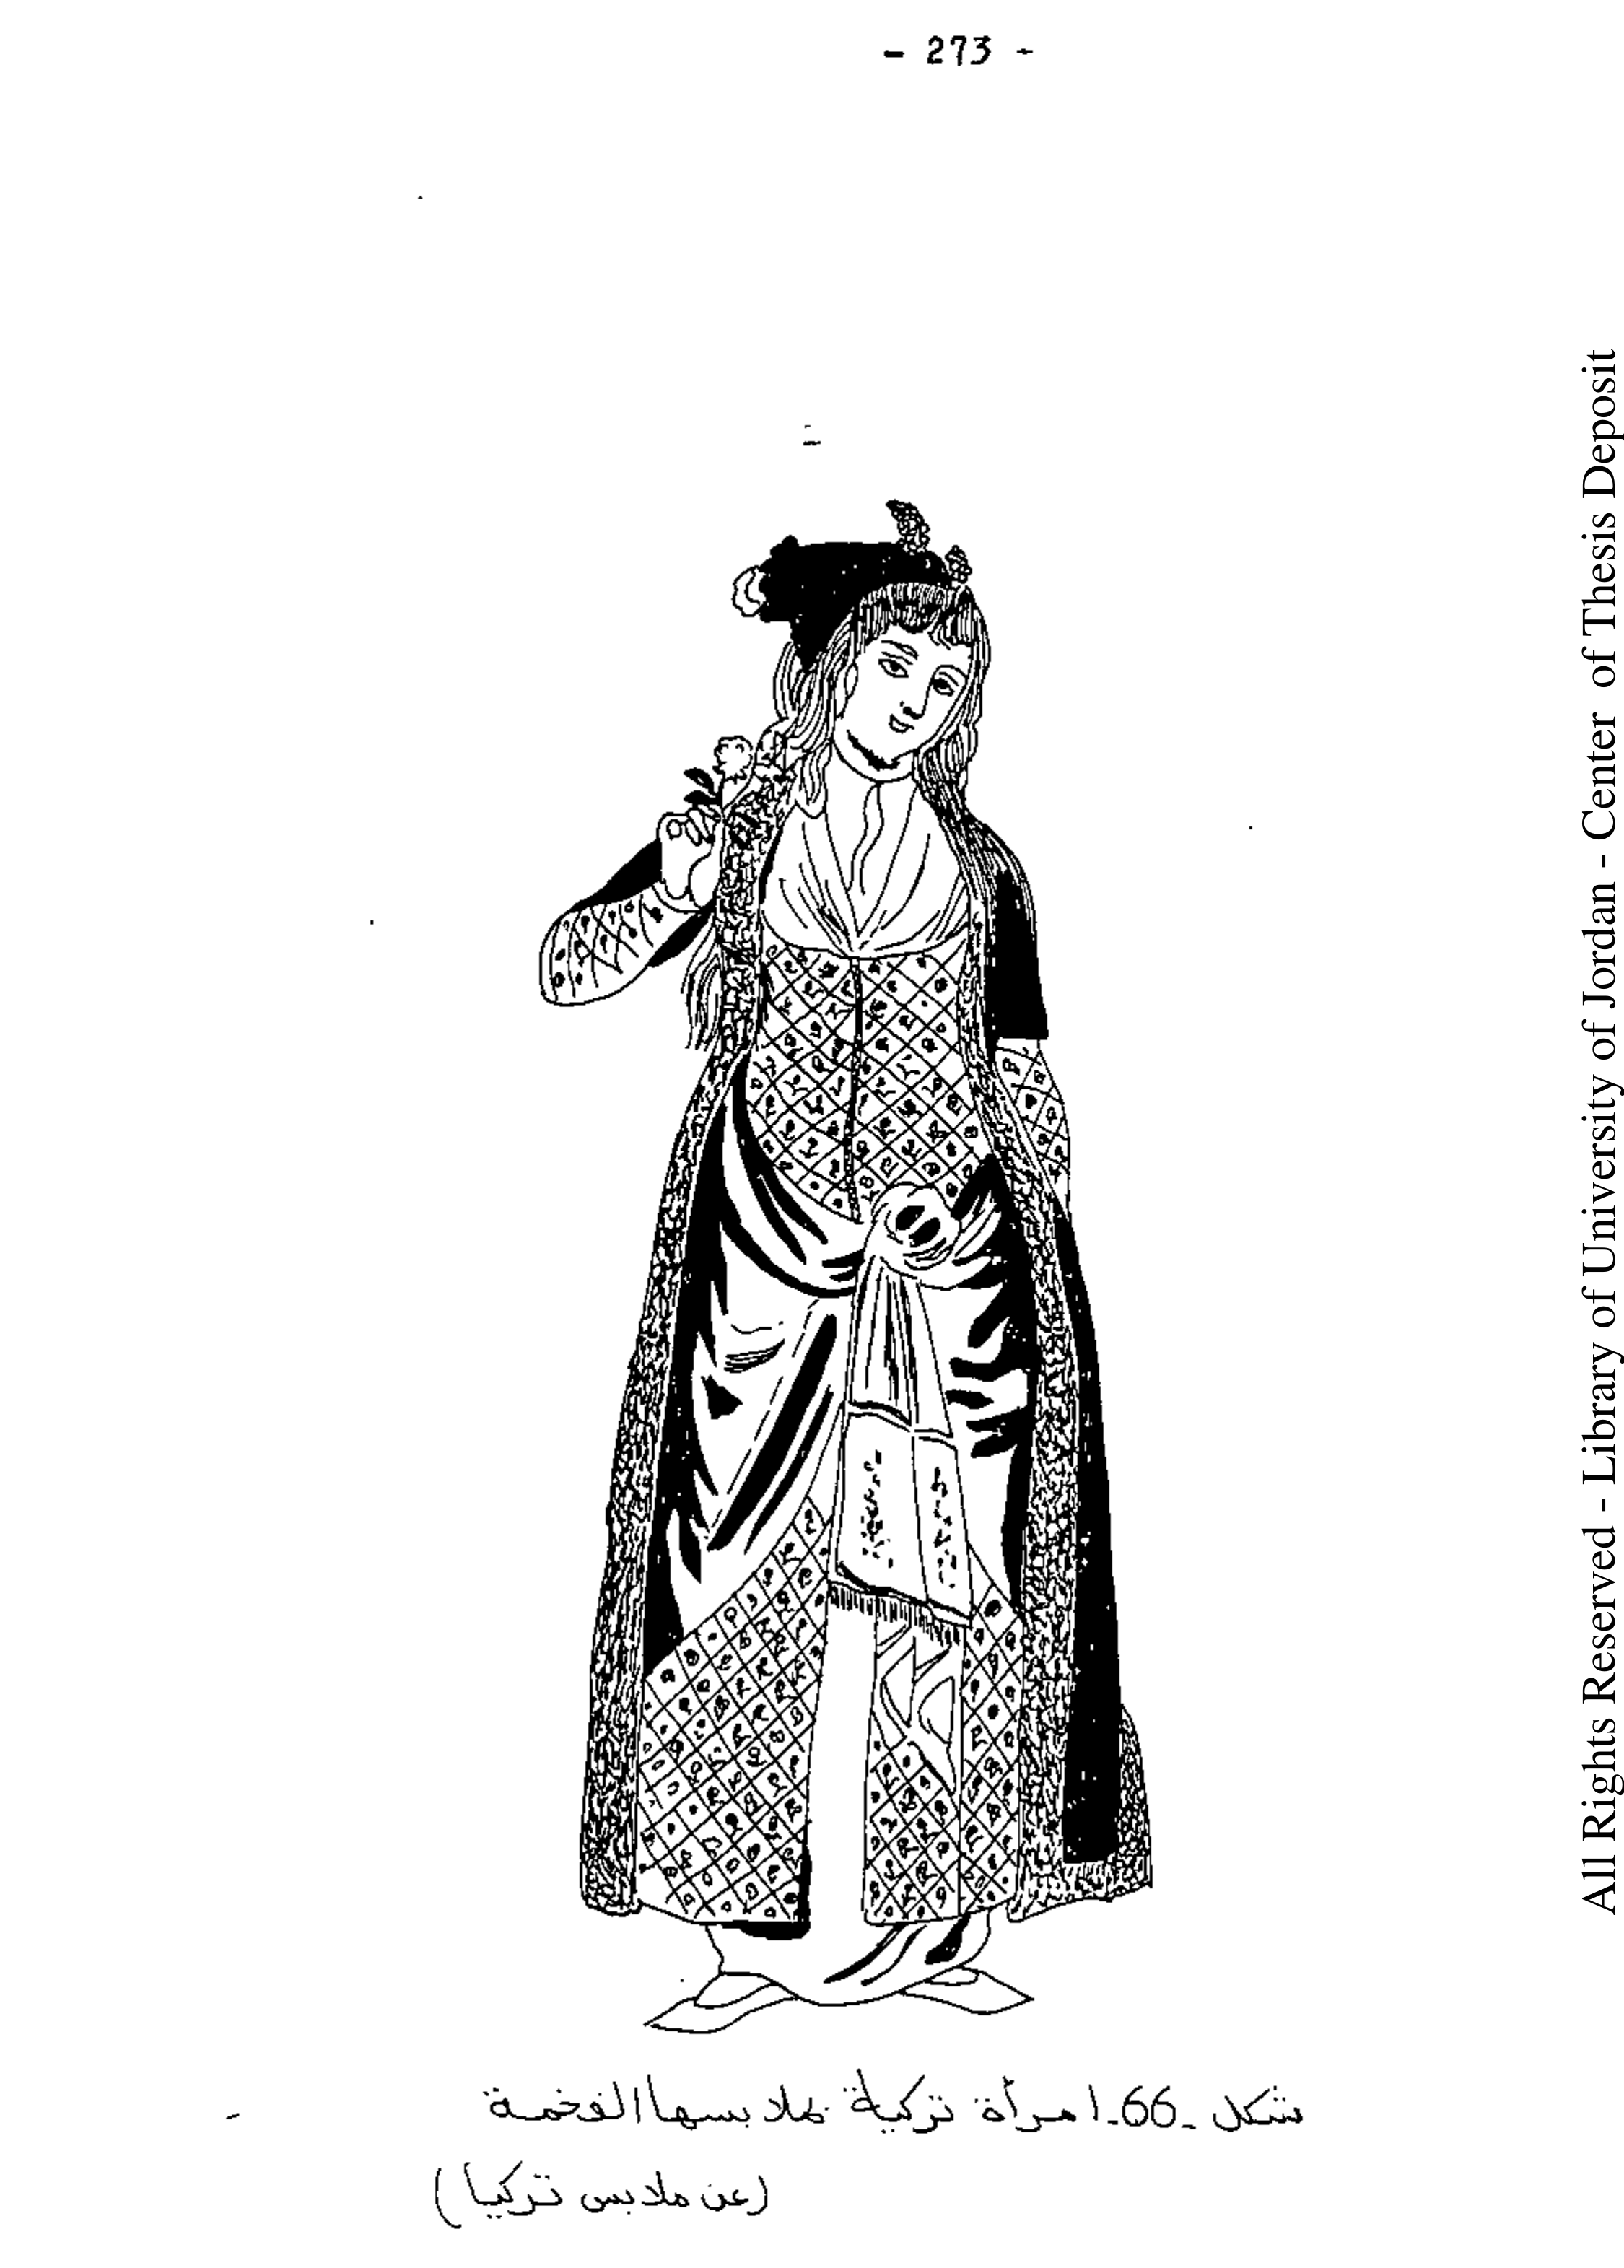 - 273 -
شكل -66- امرأة تركية بملابسها الفخمة
(عن ملابس تركيا)
All Rights Reserved - Library of University of Jordan - Center of Thesis Deposit